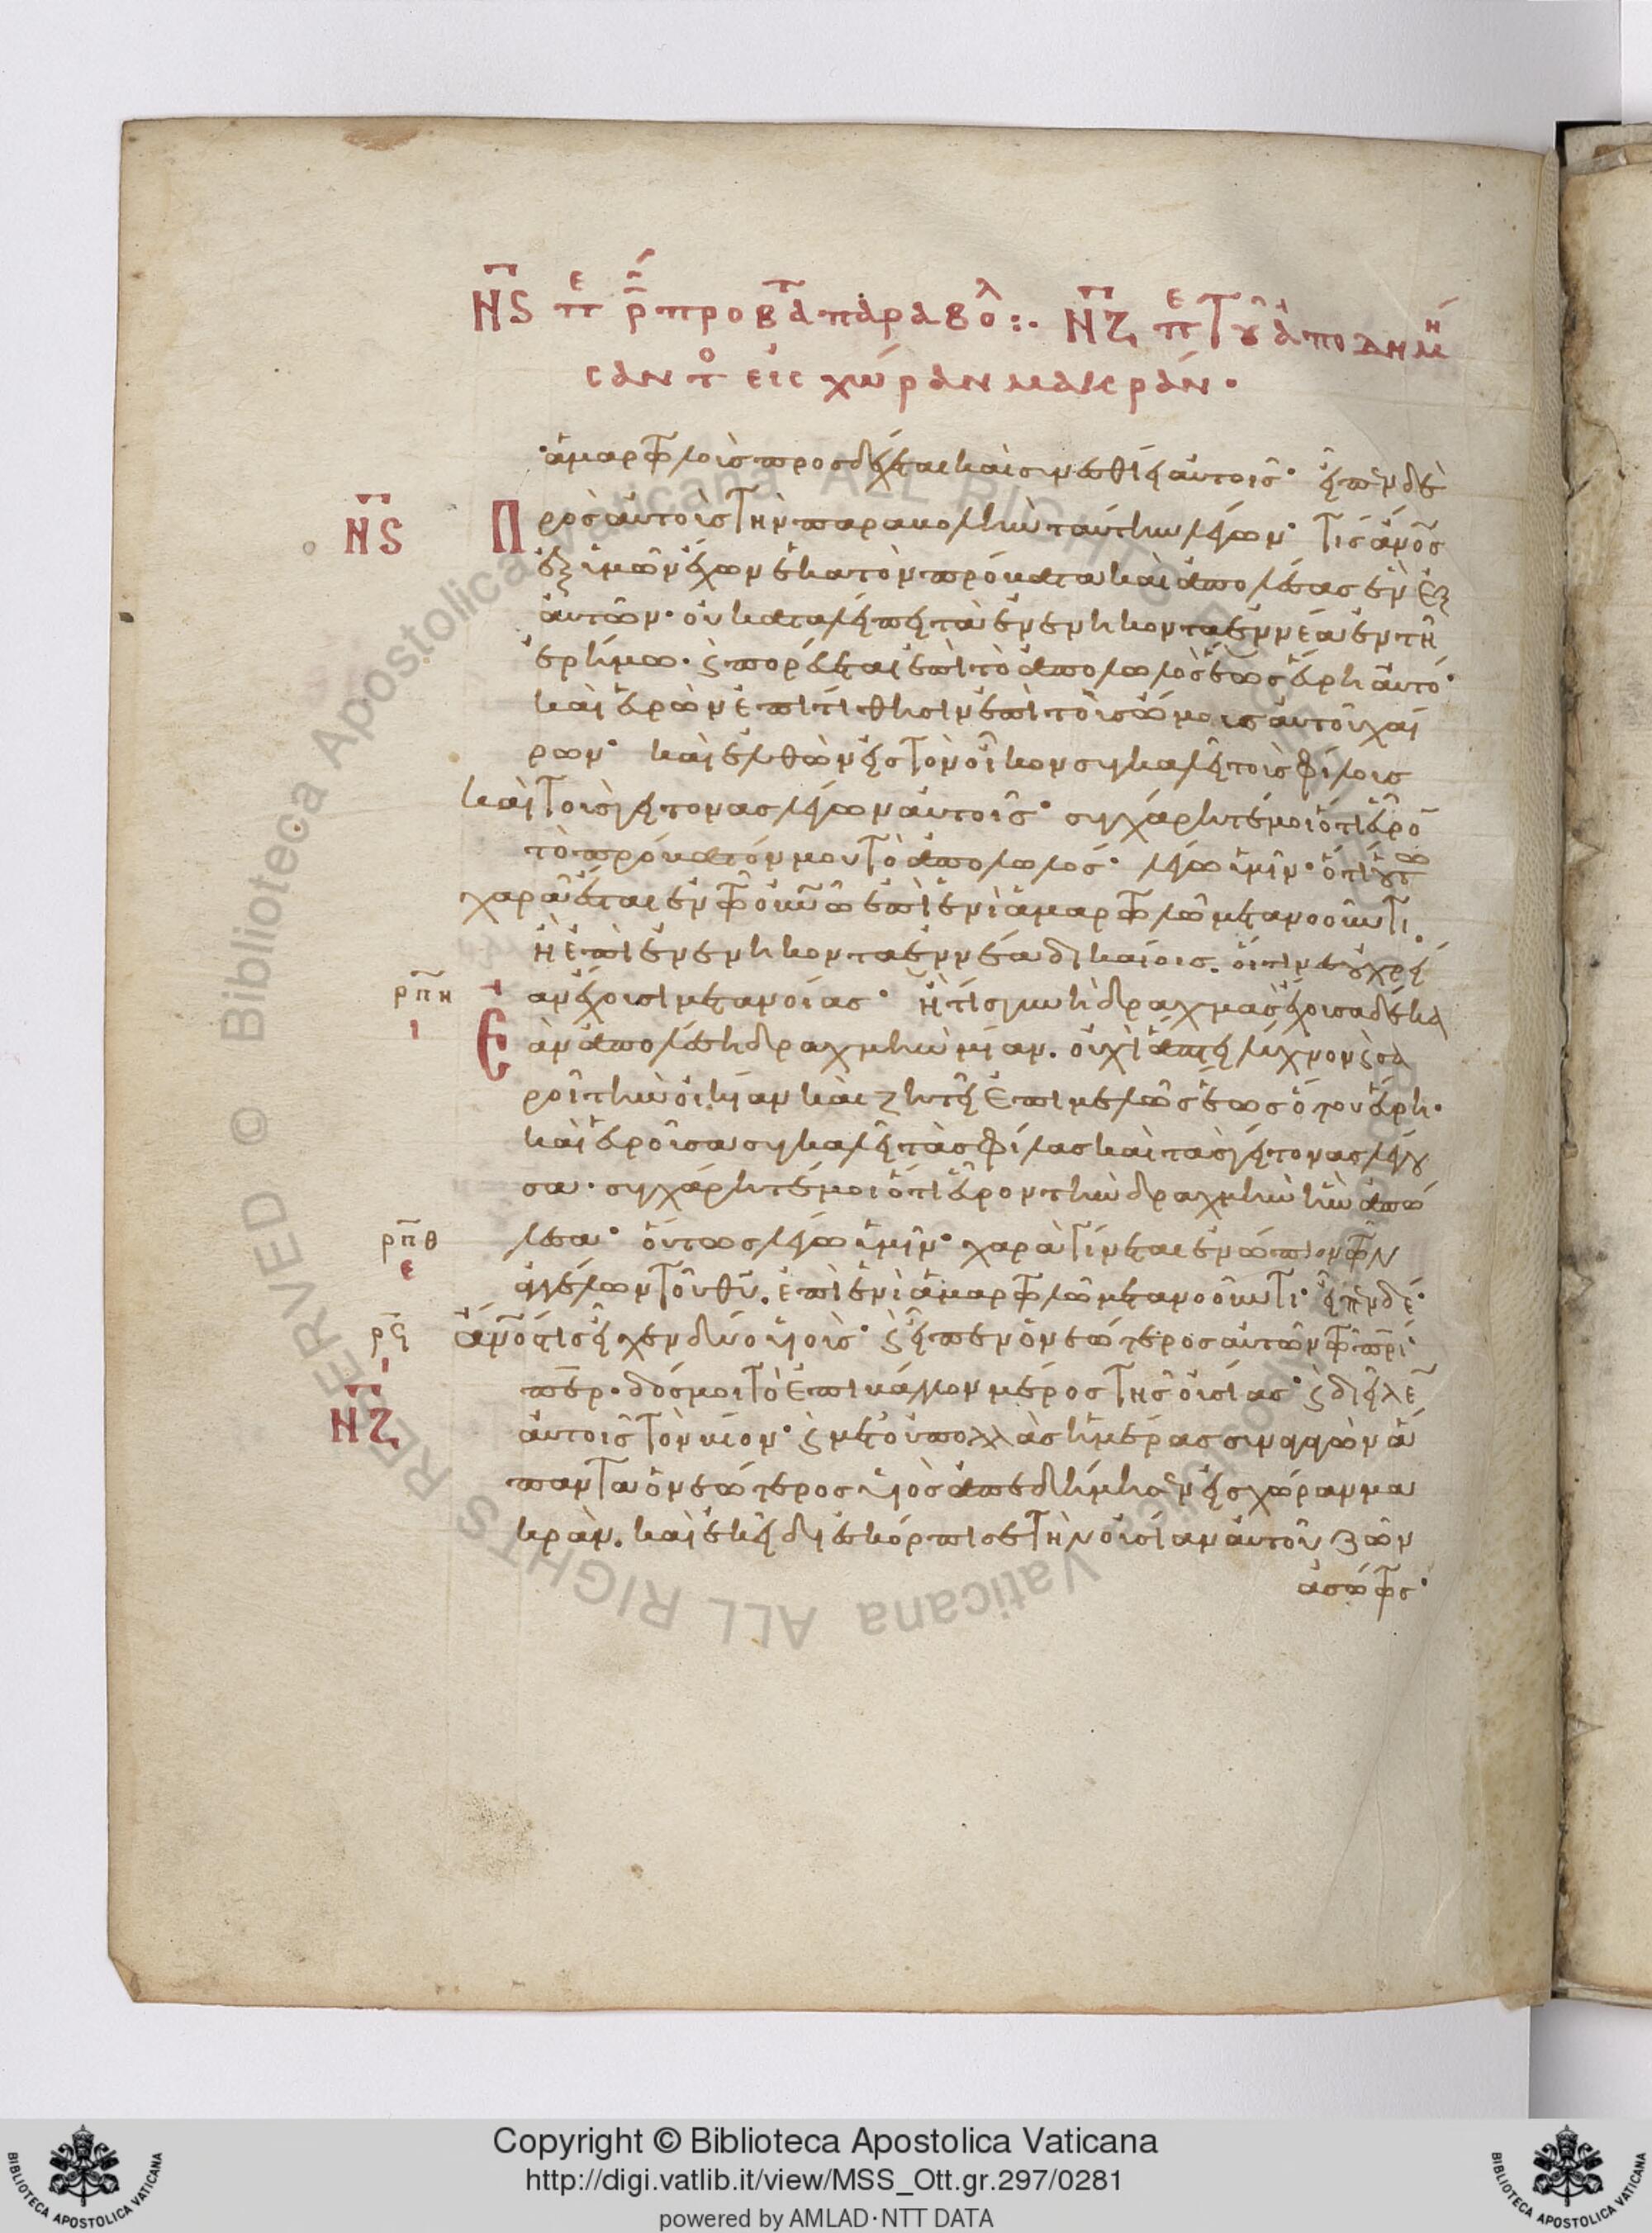 ΝϚ πε ρ προβτ παραβολ :· ΝΖ πε τοῦ ἀποδημή
σαντο εἰς χώραν μακράν·
ἁμαρτωλοὺς προσδέχεται καὶ συνεσθίει αὐτοῖς· εἶπεν δὲ
ΝϚ
πρὸς αὐτοὺς τὴν παραβολὴν ταύτην λέγων· τίς ἄνος
ἐξ ὑμῶν ἔχων ἑκατὸν πρόβατα καὶ ἀπολέσας ἓν ἐξ
αὐτῶν· οὐ καταλείπει τὰ ἐνενηκονταεννέα ἐν τῆ
ἐρήμω· ϗ πορεύεται ἐπὶ τὸ ἀπολωλὸς ἕως εὕρη αὐτό·
καὶ εὑρὼν ἐπιτίθησιν ἐπὶ τοὺς ὤμους αὐτοῦ χαί
ρων· καὶ ἐλθὼν εἰς τὸν οἶκον συγκαλεῖ τοὺς φίλους
καὶ τοὺς γείτονας λέγων αὐτοῖς· συγχάρητέ μοι ὅτι εὗρον
τὸ πρόβατόν μου τὸ ἀπολωλός· λέγω ὑμῖν· ὅτι οὕτω
χαρὰ ἔσται ἐν τῶ οὐνῶ ἐπὶ ἑνὶ ἁμαρτωλῶ μετανοοῦντι·
ἢ ἐπὶ ἐνενηκονταεννέα δικαίοις· οἵτινες οὐ χρεί
ρπη
ι
αν ἔχουσι μετανοίας· ἢ τίς γυνὴ δραχμὰς ἔχουσα δέκα
ἐὰν ἀπολέση δραχμὴν μίαν· οὐχὶ ἅπτει λύχνον ϗ σα
ροῖ τὴν οἰκίαν καὶ ζητεῖ ἐπιμελῶς ἕως ὅτου εὕρη·
καὶ εὑροῦσα συγκαλεῖ τὰς φίλας καὶ τὰς γείτονας λέγου
σα· συγχάρητέ μοι ὅτι εὗρον τὴν δραχμὴν ἣν ἀπώ
ρπθ
ε
λεσα· οὕτως λέγω ὑμῖν· χαρὰ γίνεται ἐνώπιον τῶν
ἀγγέλων τοῦ θυ· ἐπὶ ἑνὶ ἁμαρτωλῶ μετανοοῦντι· εἶπεν δέ·
ρϟ
ι
ἄνος τις εἶχεν δύο υἱούς· ϗ εἶπεν ὁ νεώτερος αὐτῶν τῶ πρι·
περ· δός μοι τὸ ἐπιβάλλον μέρος τῆς οὐσίας· ϗ διεῖλεν
ΝΖ
αὐτοῖς τὸν βίον· ϗ μετ' οὐ πολλὰς ἡμέρας συναγαγὼν ἅ
παντα ὁ νεώτερος υἱὸς ἀπεδήμησεν εἰς χώραν μα
κράν· καὶ ἐκεῖ διεσκόρπισε τὴν οὐσίαν αὐτοῦ ζῶν
ἀσώτως·
© Biblioteca Apostolica Vaticana ALL RIGHTS RESERVED
© Biblioteca Apostolica Vaticana ALL RIGHTS RESERVED
Copyright © Biblioteca Apostolica Vaticana
http://digi.vatlib.it/view/MSS_Ott.gr.297/0281
powered by AMLAD·NTT DATA
BIBLIOTECA APOSTOLICA VATICANA
BIBLIOTECA APOSTOLICA VATICANA